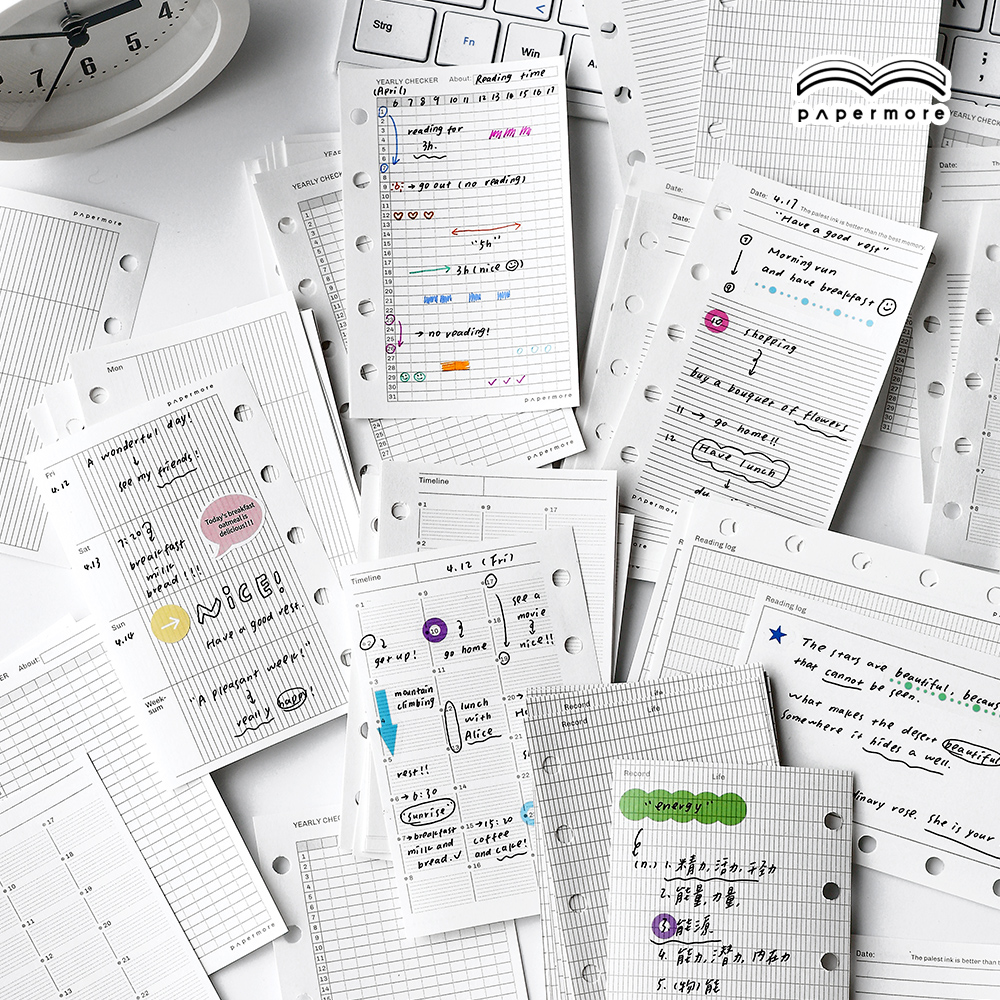 Strg
Fn
Win
5
4
6
7
papermore
YEARLY CHECKER About: Reading time
(April)
6 7 8 9 10 11 12 13 14 15 16 17
1
2
3
4
5
reading for
3h.
9 → go out (no reading)
"5h"
3h (nice ☺)
→ no reading!
papermore
Date: 4.17 The palest ink is better than the best memory.
"Have a good rest"
7
Morning run
9
and have breakfast ☺
10
shopping
buy a bouquet of flowers
11 → go home!!
12
Have lunch
papermore
Date:
Date:
YEARLY CHECKER
papermore
Mon
papermore
Fri
4.12
A wonderful day!
↓
see my friends!
Sat
4.13
7:20
breakfast
milk
bread!!!
Today's breakfast
oatmeal is
delicious!!!
NICE!
Have a good rest.
Sun
4.14
Week-
sum
"A pleasant week!"
really happy!
Timeline
1
9
17
2
Timeline
4.12 (Fri)
1
9
17
see a
movie
nice!!
18
19
2
get up!
10
go home
11
3
mountain
climbing
4
12
lunch
with
Alice
13
5
rest!!
14
6
→ 6:30
sunrise
7
→ breakfast
milk and
bread. ✓
15
→ 15:20
coffee
and cake!
8
16
20
21
22
Reading log
Reading log
The stars are beautiful, becaus
that cannot be seen.
What makes the desert beautiful
somewhere it hides a well.
dinary rose. she is your
Record Life
Record Life
Record Life
"energy"
(n.) 1. 精力, 活力, 干劲
2. 能量, 力量,
3. 能源
4. 能力, 潜力, 内在力
5. (物) 能
About:
papermore
17
18
19
20
21
22
10
11
12
13
YEARLY CHECKER
Date: The palest ink is better than